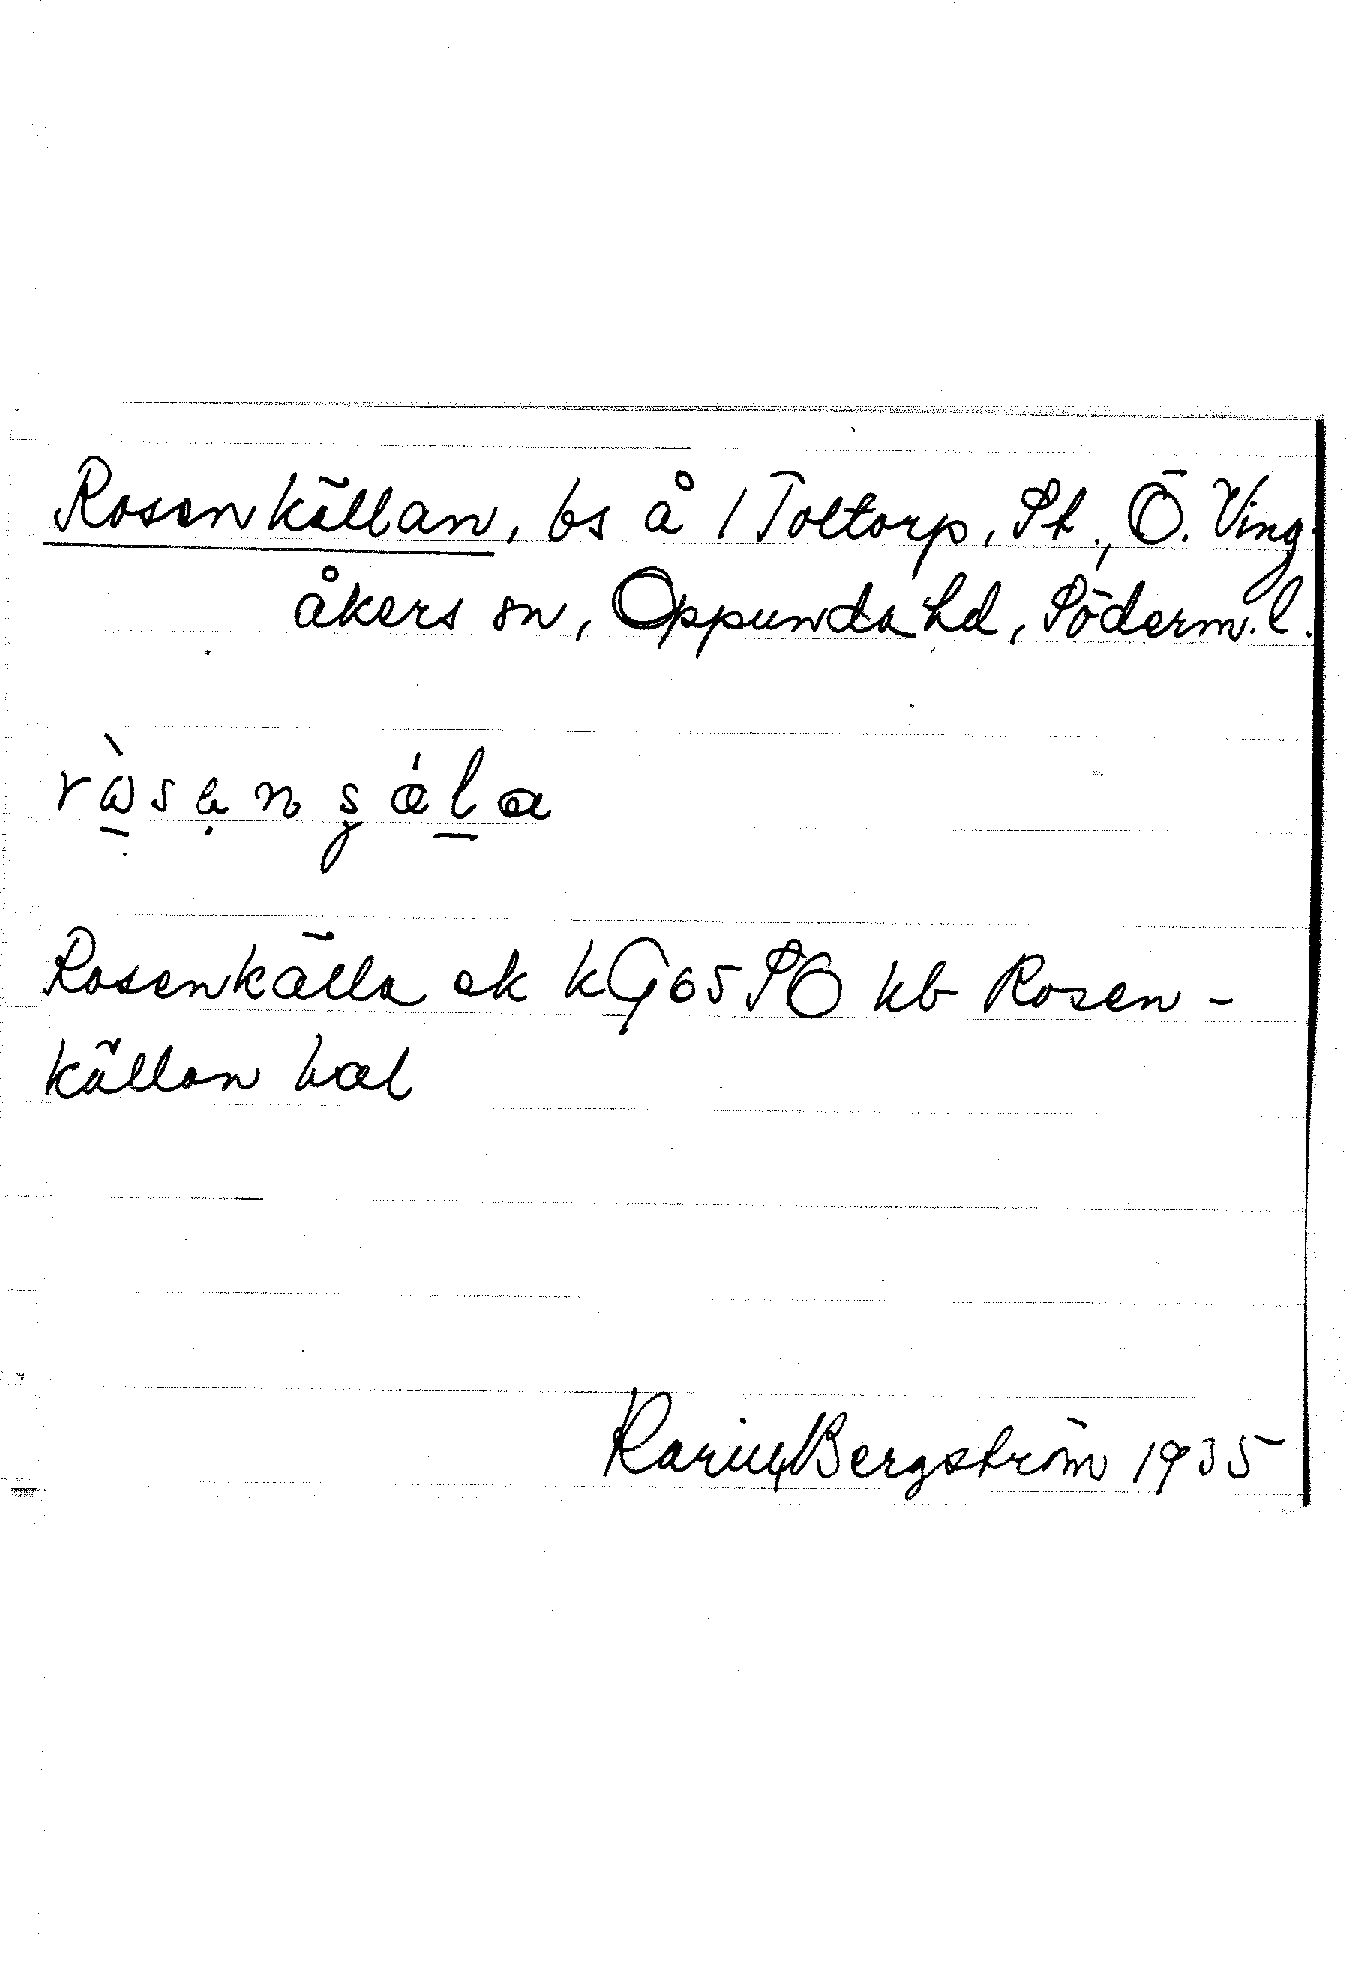 Rosenkällan, bs å 1 Toltorp, St., Ö. Ving-
åkers sn, Oppunda hd, Söderm. l.
Rosenkälla ek kG65SO kb Rosen-
källan
Karin Bergström 1935